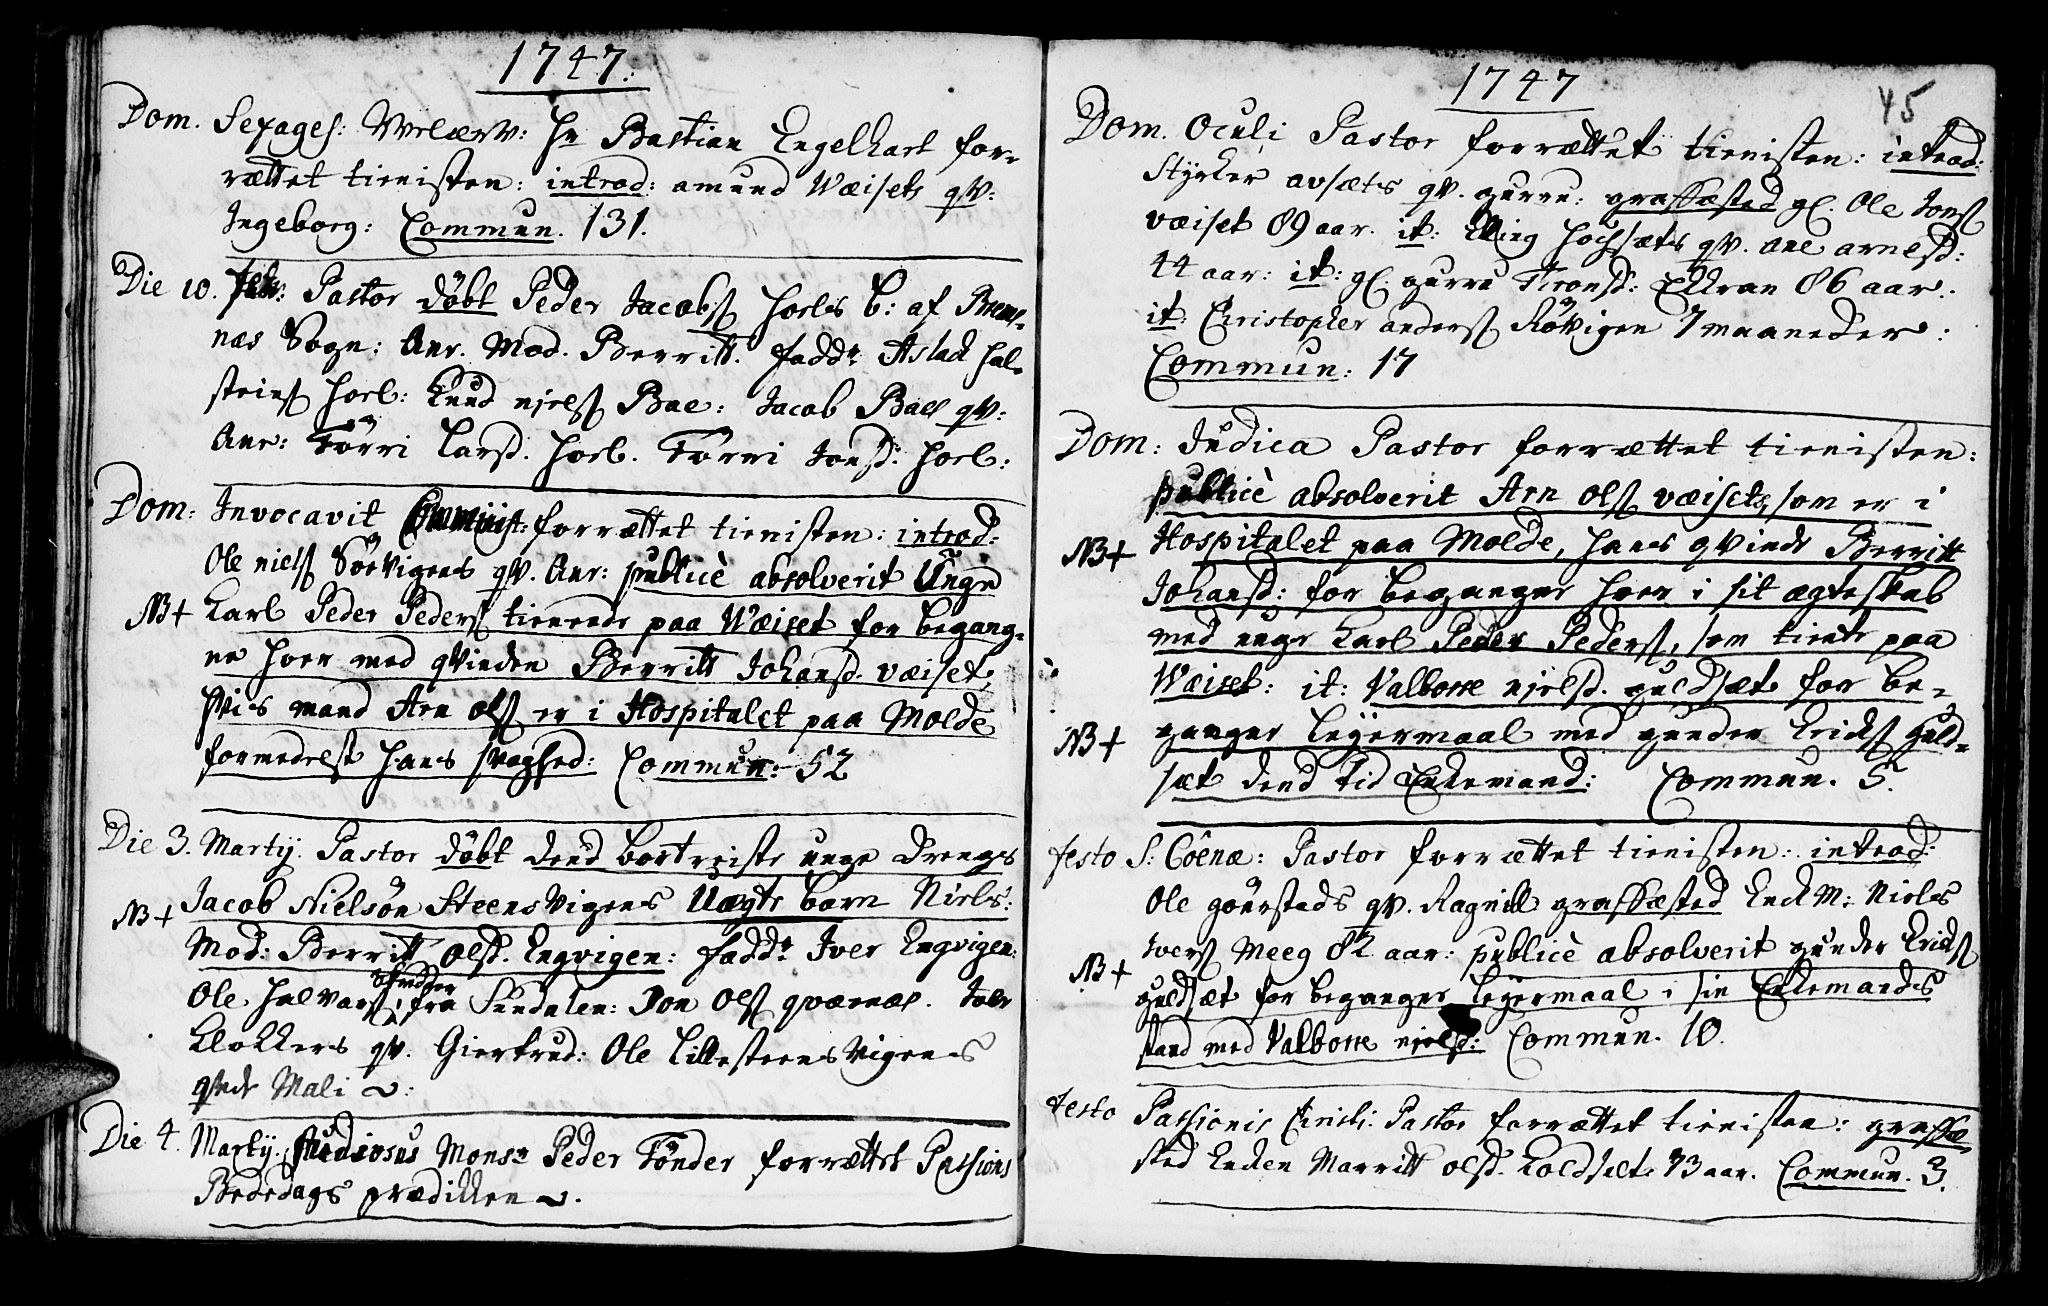 1747.
Dom. Sexages: Welærv: Hr Bastian Engelhart for=
rættet tienisten: introd: amund Wæisets qv:
Ingeborg: Commun. 131.
Die 10. Febr: Pastor døbt Peder Jacobs B: af Brem=
næs Sogn: Anr. Mod. Berritt. fadd: Aslack Hal=
steins Knud njels Bae: Jacob Baes qv:
Anr: Tørri Larsd. Tørri Jonsd.
Dom: Invocavit forrættet tienisten: introd.
Ole niels Sørvigens qv. Anr: publicè absolverit Unge
NB+ Karl Peder Peders tienende paa Wæiset for begang=
ne hoer med qvinden Berritt Johansd. væiset,
hvis mand Arn ols er i Hospitalet paa Molde
formedelst hans svaghed: Commun: 52
Die 3. Martij. Pastor døbt dend bortreiste unge drengs
NB+ Jacob Nielsøn Steensvigens Uægte barn Niels:
Mod: Berritt olsd. Engvigen: fadd: Iver Engvigen:
Ole halvars fra Sundalen: Jon Ols qværnæs.
Klokkers qv. Giertrud: Ole Lillesteensvigens
qvde Mali
Die 4. Martij. Studiosus Monsr Peder Tønder forrættet Passions
Bededags prædikken
1747
45
Dom. Oculi Pastor forrættet tienisten: introd:
Styrker avsæts qv. gurru: graffæsted gl. Ole Jons
væiset 89 aar. it: Elling qv. ane arnesd:
44 aar: it: gl. gurru Tronsd: Ekran 86 aar.
it: Christopher anders Røvigen 7 maaneder:
Commun: 17
Dom: Judica Pastor forrættet tienisten:
publicè absolverit Arn ols væisets, som er i
NB+ Hospitalet paa Molde, hans qvinde Berritt
Johansd: for begangne hoer i sit ægteskab
med unge Karl Peder Peders, som tiente paa
Wæiset: it: Valborre njelsd. guldsæt for be=
NB+ gangne Leyermaal med gunder Ericks guld=
sæt dend tid Enkemand: Commun. 5.
festo S: Cœnæ: Pastor forrættet tienisten: introd:
Ole gøurstads qv. Ragnill graffæsted EnckM: Niels
Ivers Meeg 82 aar: publicè absolverit gunder Ericks
NB+ guldsæt for begangne Leyermaal i sin Enkemands
stand med Valborre njelsd: Commun. 10.
festo Passionis Christi: Pastor forrættet tienisten: graffæ
sted Enken Marritt olsd. 73 aar. Commun. 3.